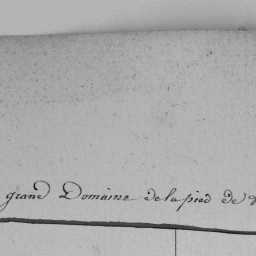 grand Domaine de la pied de